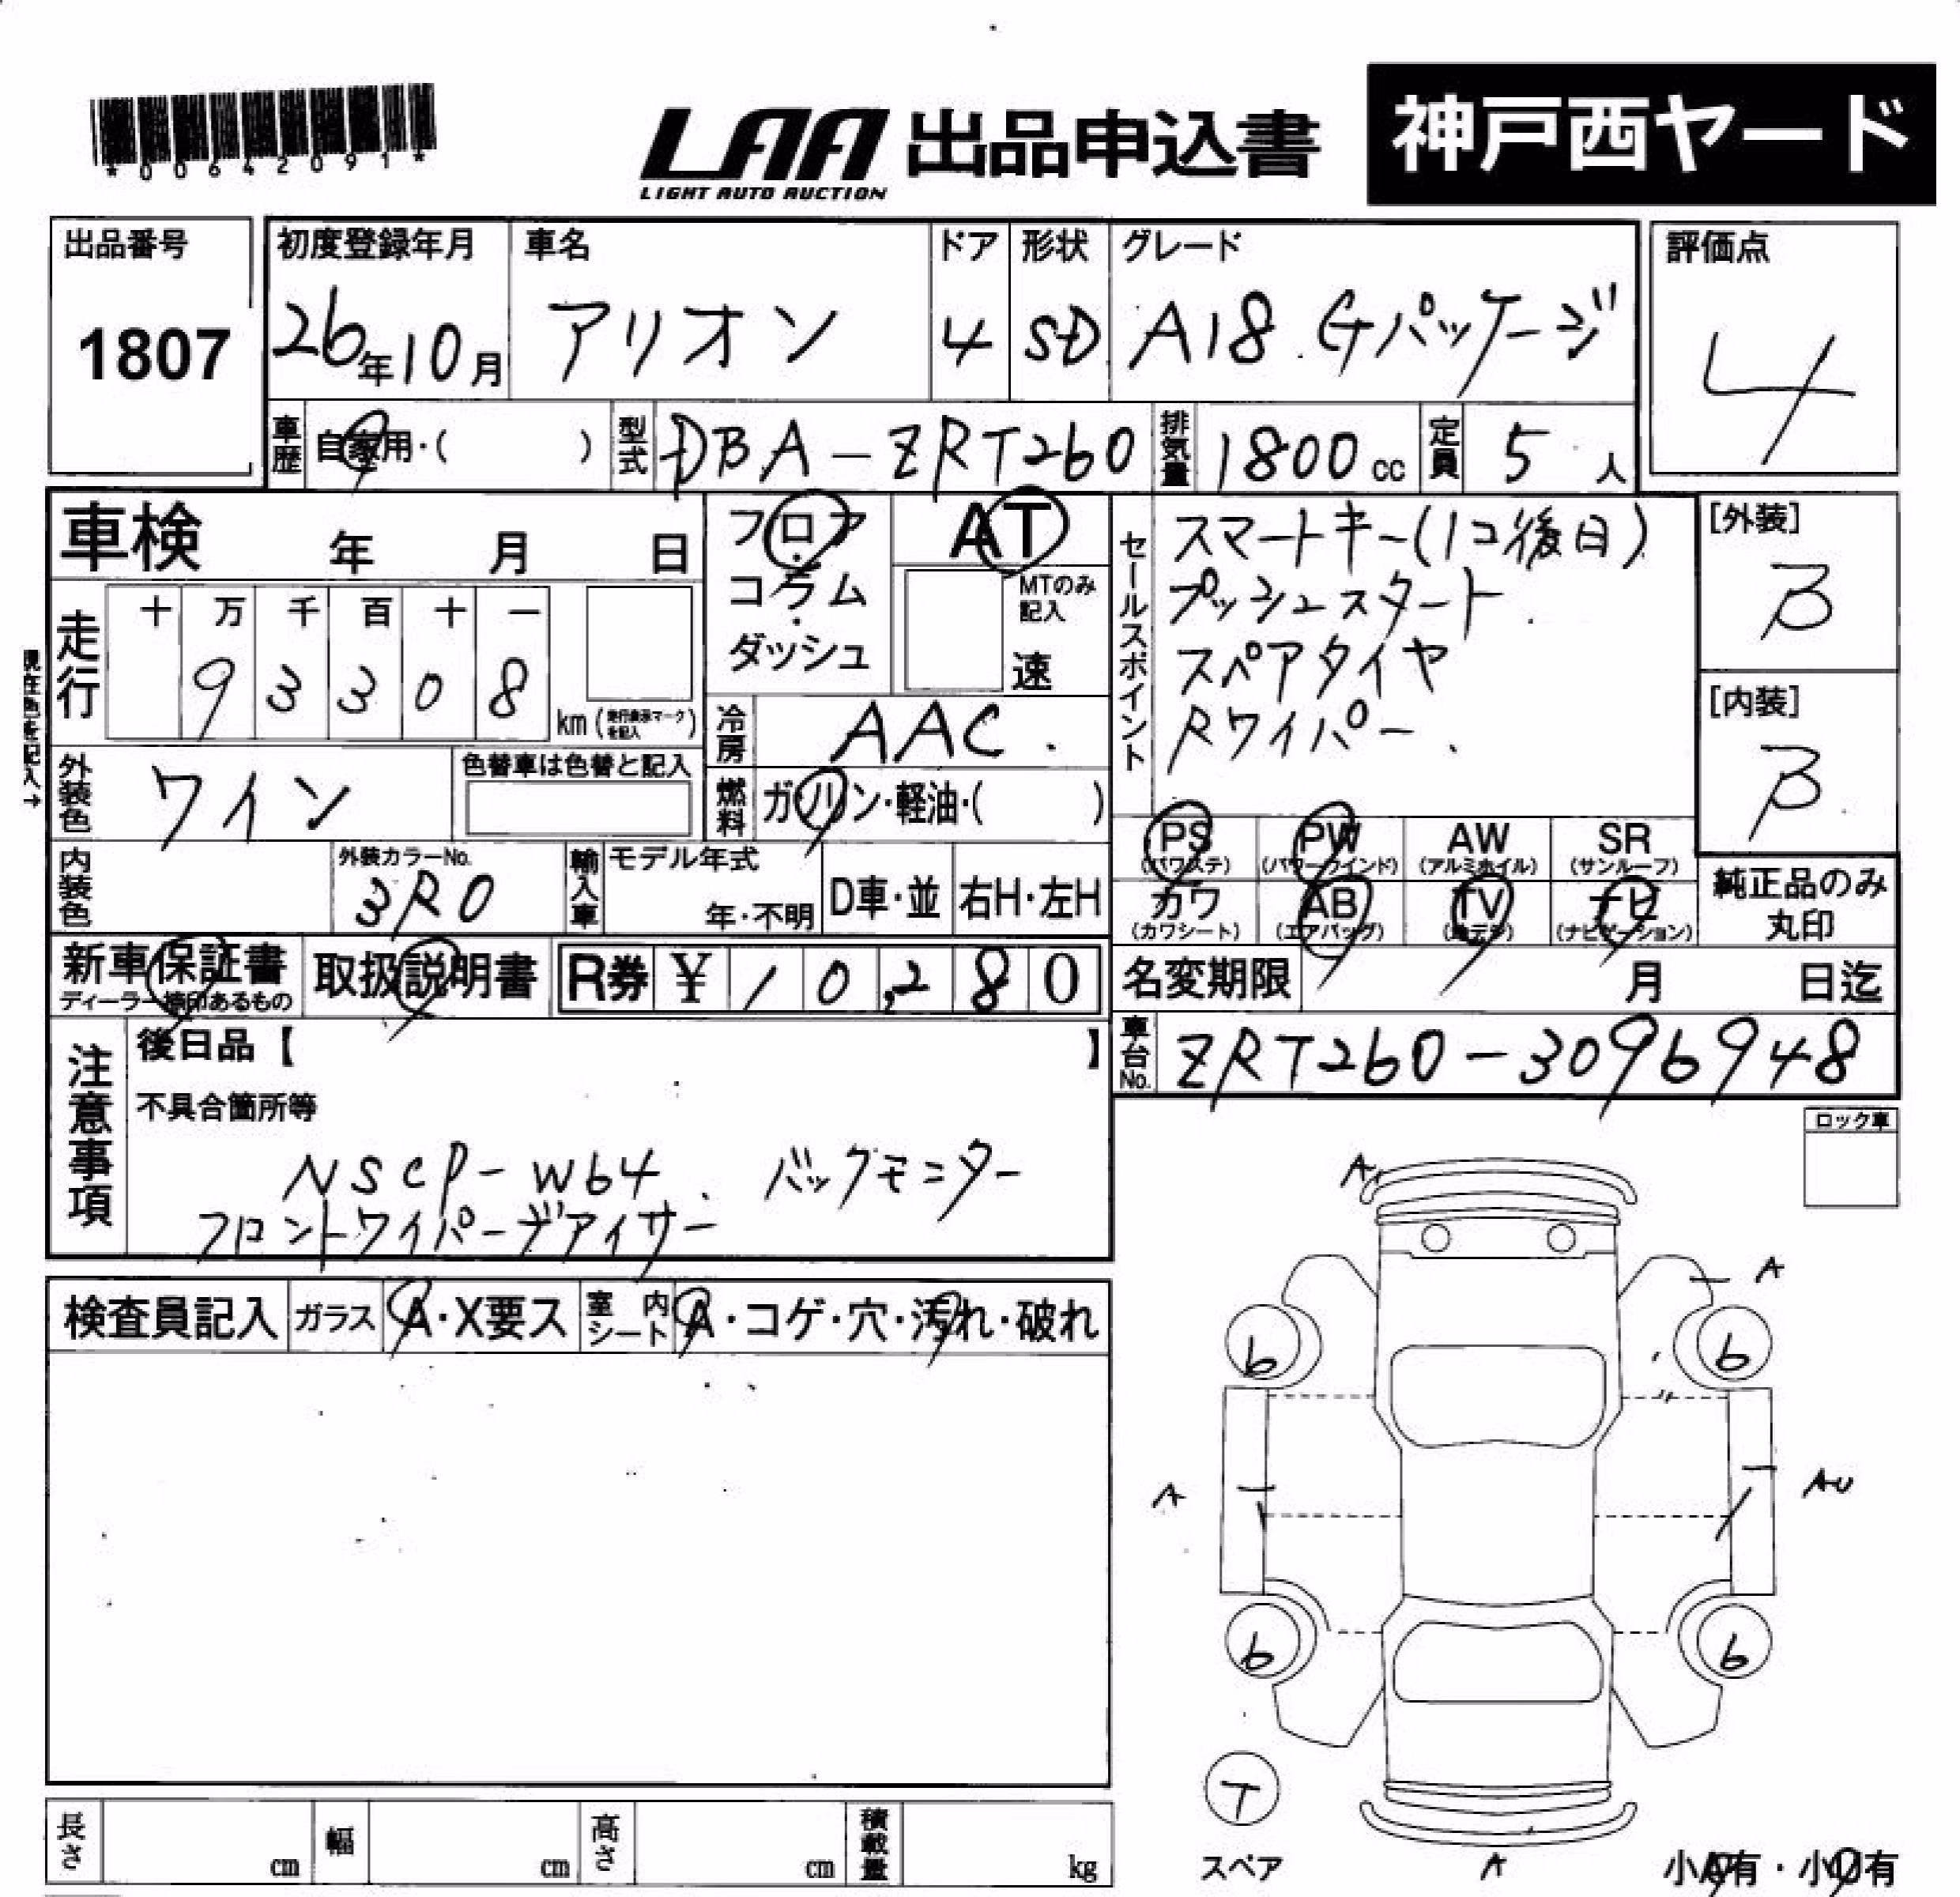 *00642091*
LAA 出品申込書 神戸西ヤード
LIGHT AUTO AUCTION
出品番号 初度登録年月 車名 ドア 形状 グレード 評価点
1807 26年10月 アリオン 4 SD A18.Gパッケージ 4
車歴 自家用・( ) 型式 DBA-ZRT260 排気量 1800cc 定員 5人
車検 年 月 日 フロア・コラム・ダッシュ AT
MTのみ記入
速
走行 十 万 千 百 十 一
9 3 3 0 8 km (走行表示マークを記入)
現在色を記入→
冷房 AAC.
外装色 ワイン 色替車は色替と記入 燃料 ガソリン・軽油・( )
内装色 外装カラーNo. 3R0 輸入車 モデル年式 年・不明 D車・並 右H・左H
セールスポイント
スマートキー(1コ後日)
プッシュスタート.
スペアタイヤ
Rワイパー.
[外装]
B
[内装]
B
PS (パワステ) PW (パワーウインド) AW (アルミホイル) SR (サンルーフ)
カワ (カワシート) AB (エアバッグ) TV (地デジ) ナビ (ナビゲーション)
純正品のみ
丸印
新車保証書 ディーラー捺印あるもの 取扱説明書 R券 ¥10,280
名変期限 月 日迄
車台No. ZRT260-3096948
注意事項
後日品【 】
不具合箇所等
NSCP-W64. バックモニター
フロントワイパーデアイサー
ロック車
検査員記入 ガラス A・X要ス 室内シート A・コゲ・穴・汚れ・破れ
A
A
6 6
A AU
6 6
T
スペア A 小A有・小U有
長さ cm 幅 cm 高さ cm 積載量 kg